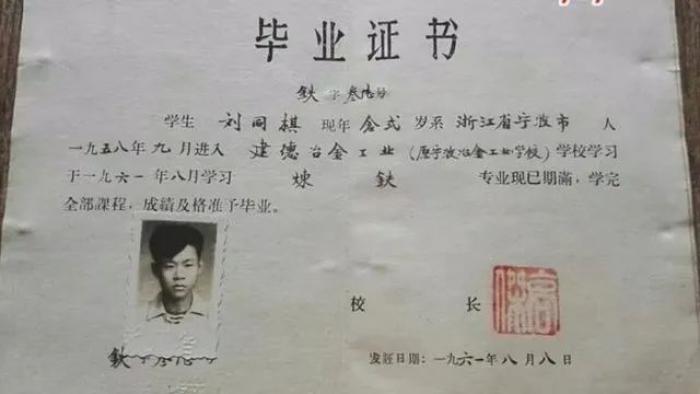 毕业证书
鉄字叁陆号
学生 刘同棋 现年 念弍 岁系 浙江省宁波市 人
一九五八年九月进入 建德冶金工业(原宁波冶金工业学校)学校学习
于一九六一年八月学习 炼 鉄 专业现已期满,学完
全部課程,成績及格准予毕业。
校 长
发証日期:一九六一年八月八日